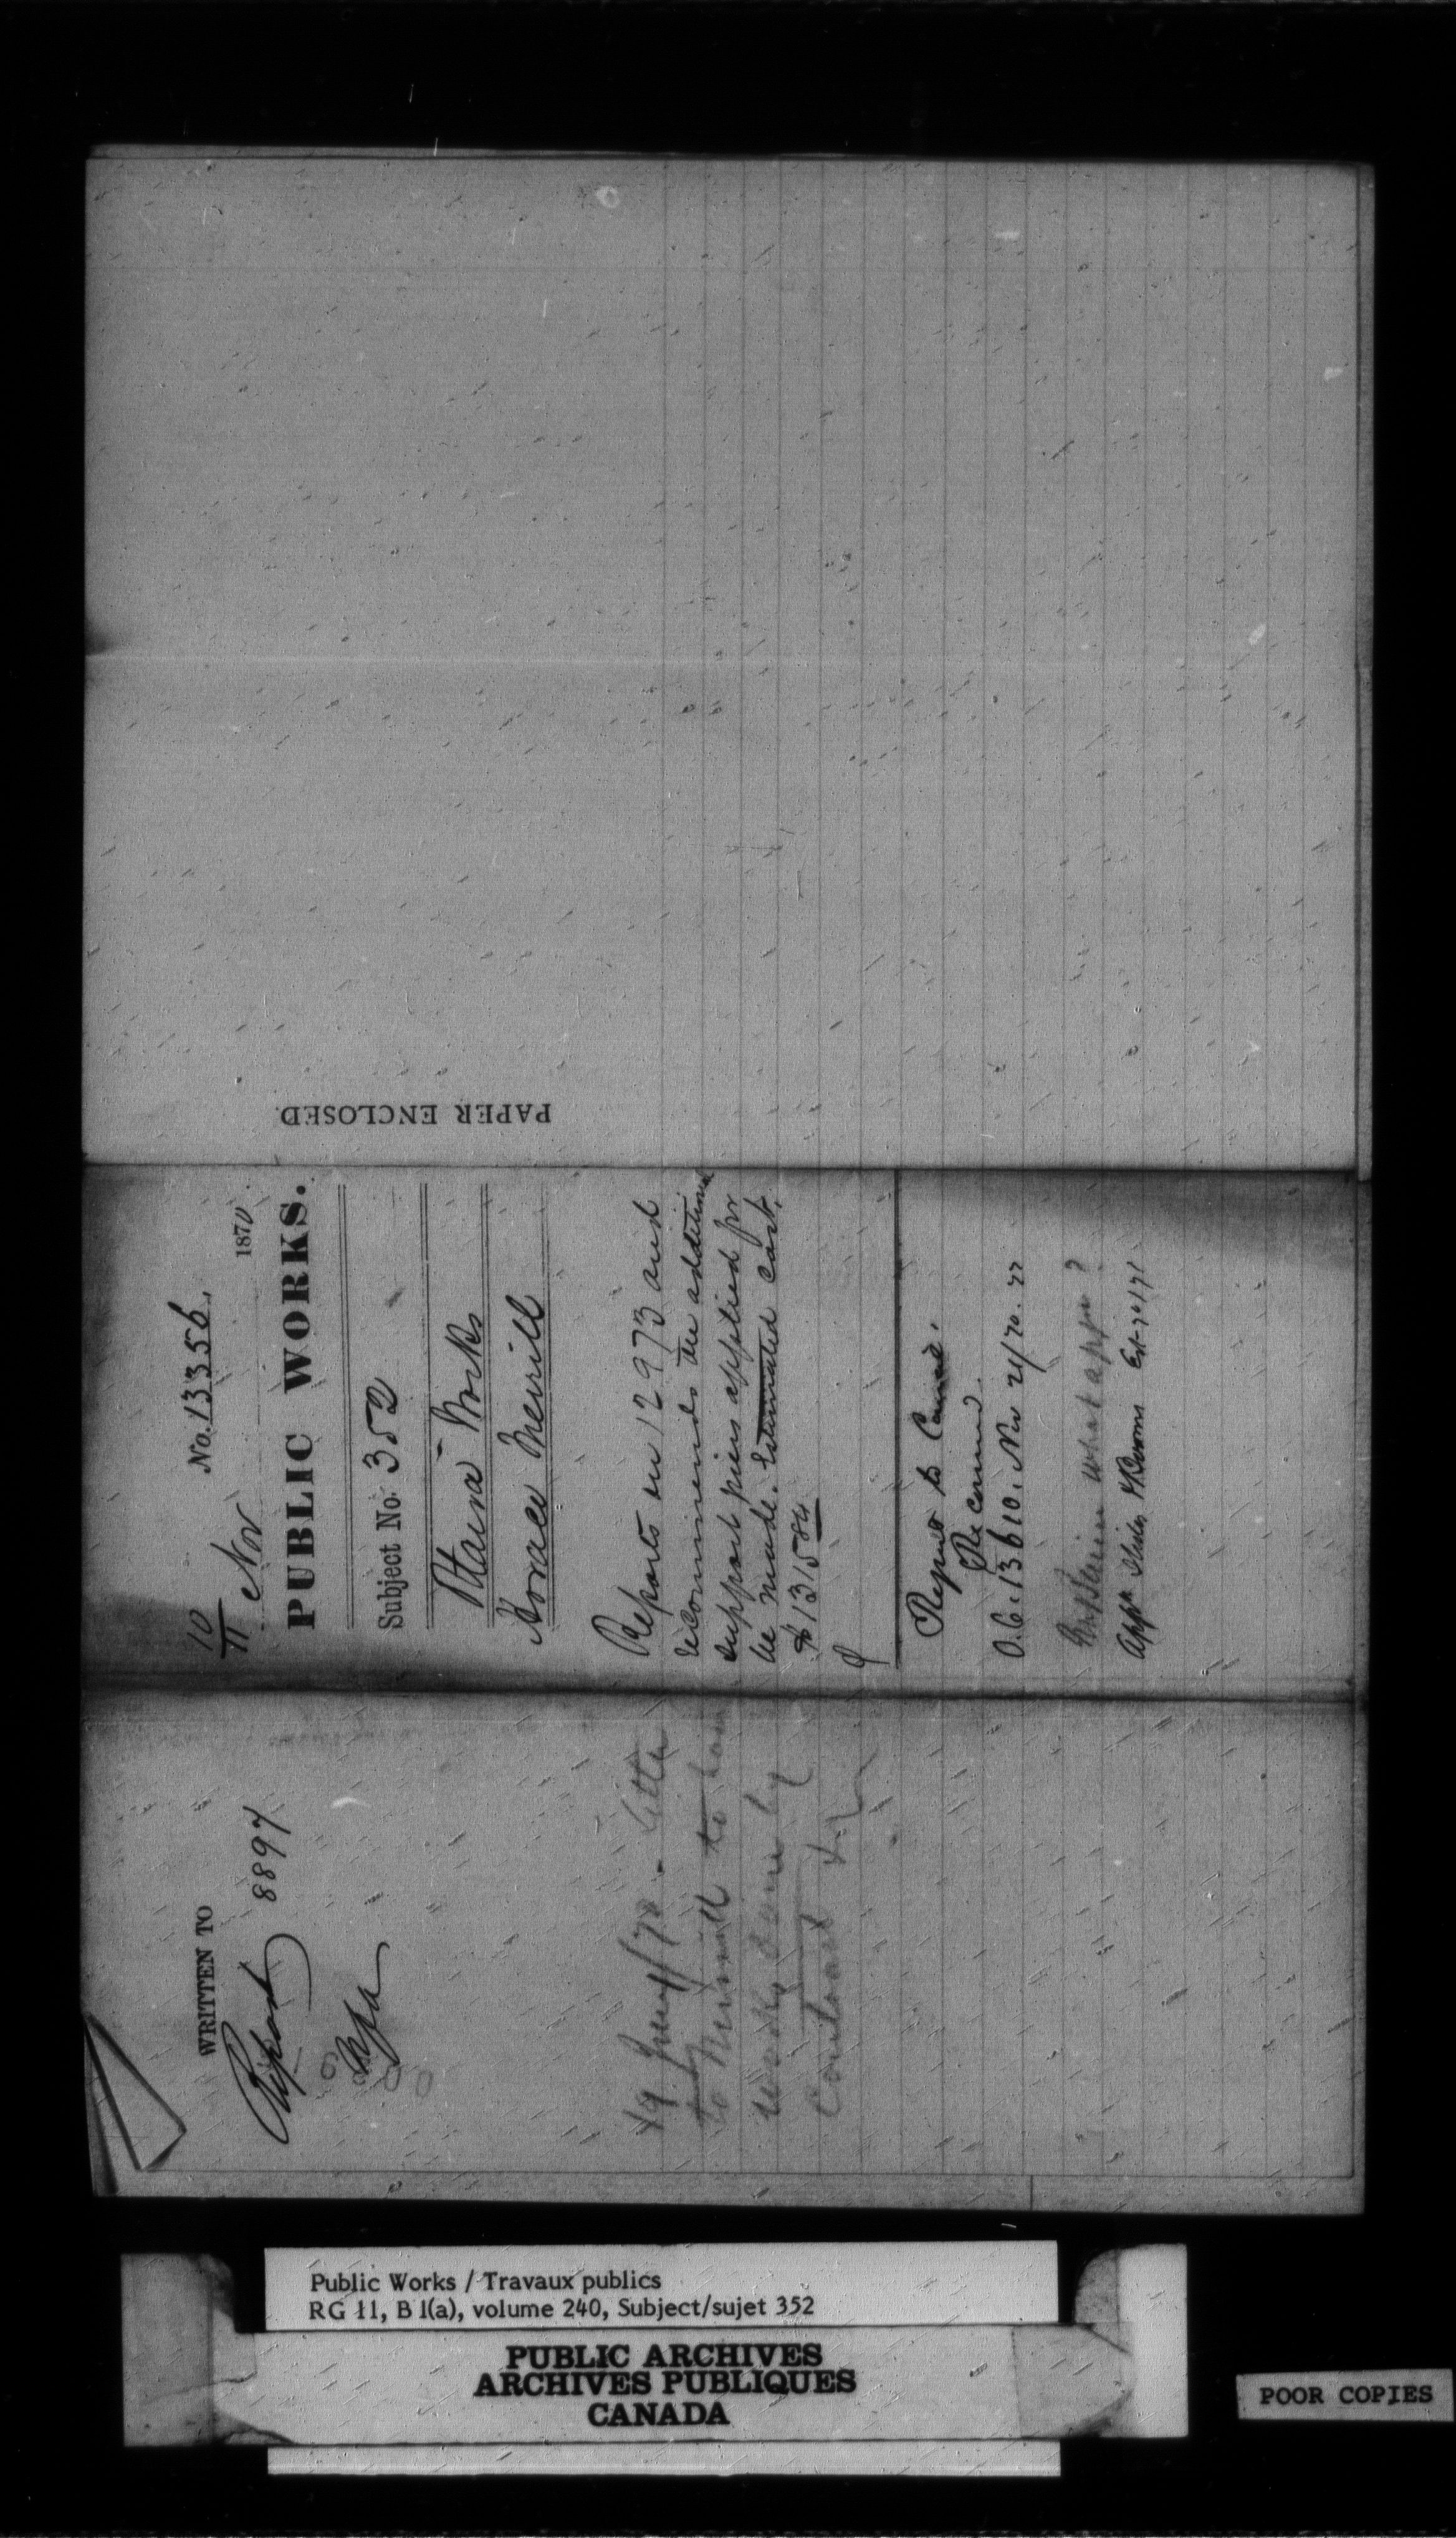 PAPER ENCLOSED
10/11 Nov No. 13356. 1870
PUBLIC WORKS.
Subject No. 352
Ottawa Works
Horace Merrill
Reports on 12973 and
recommends the additional
support piers applied for
be made. Estimated cost,
$1315.84
Report to Council.
Recomd.
O.C. 13610. Nov 21/70.
what appn?
Appn Slides & Booms Est 70/71
WRITTEN TO
Report 8897
- Letter
to Merrill to have
works done by
Contract
Public Works / Travaux publics
RG 11, B 1(a), volume 240, Subject/sujet 352
PUBLIC ARCHIVES
ARCHIVES PUBLIQUES
CANADA
POOR COPIES